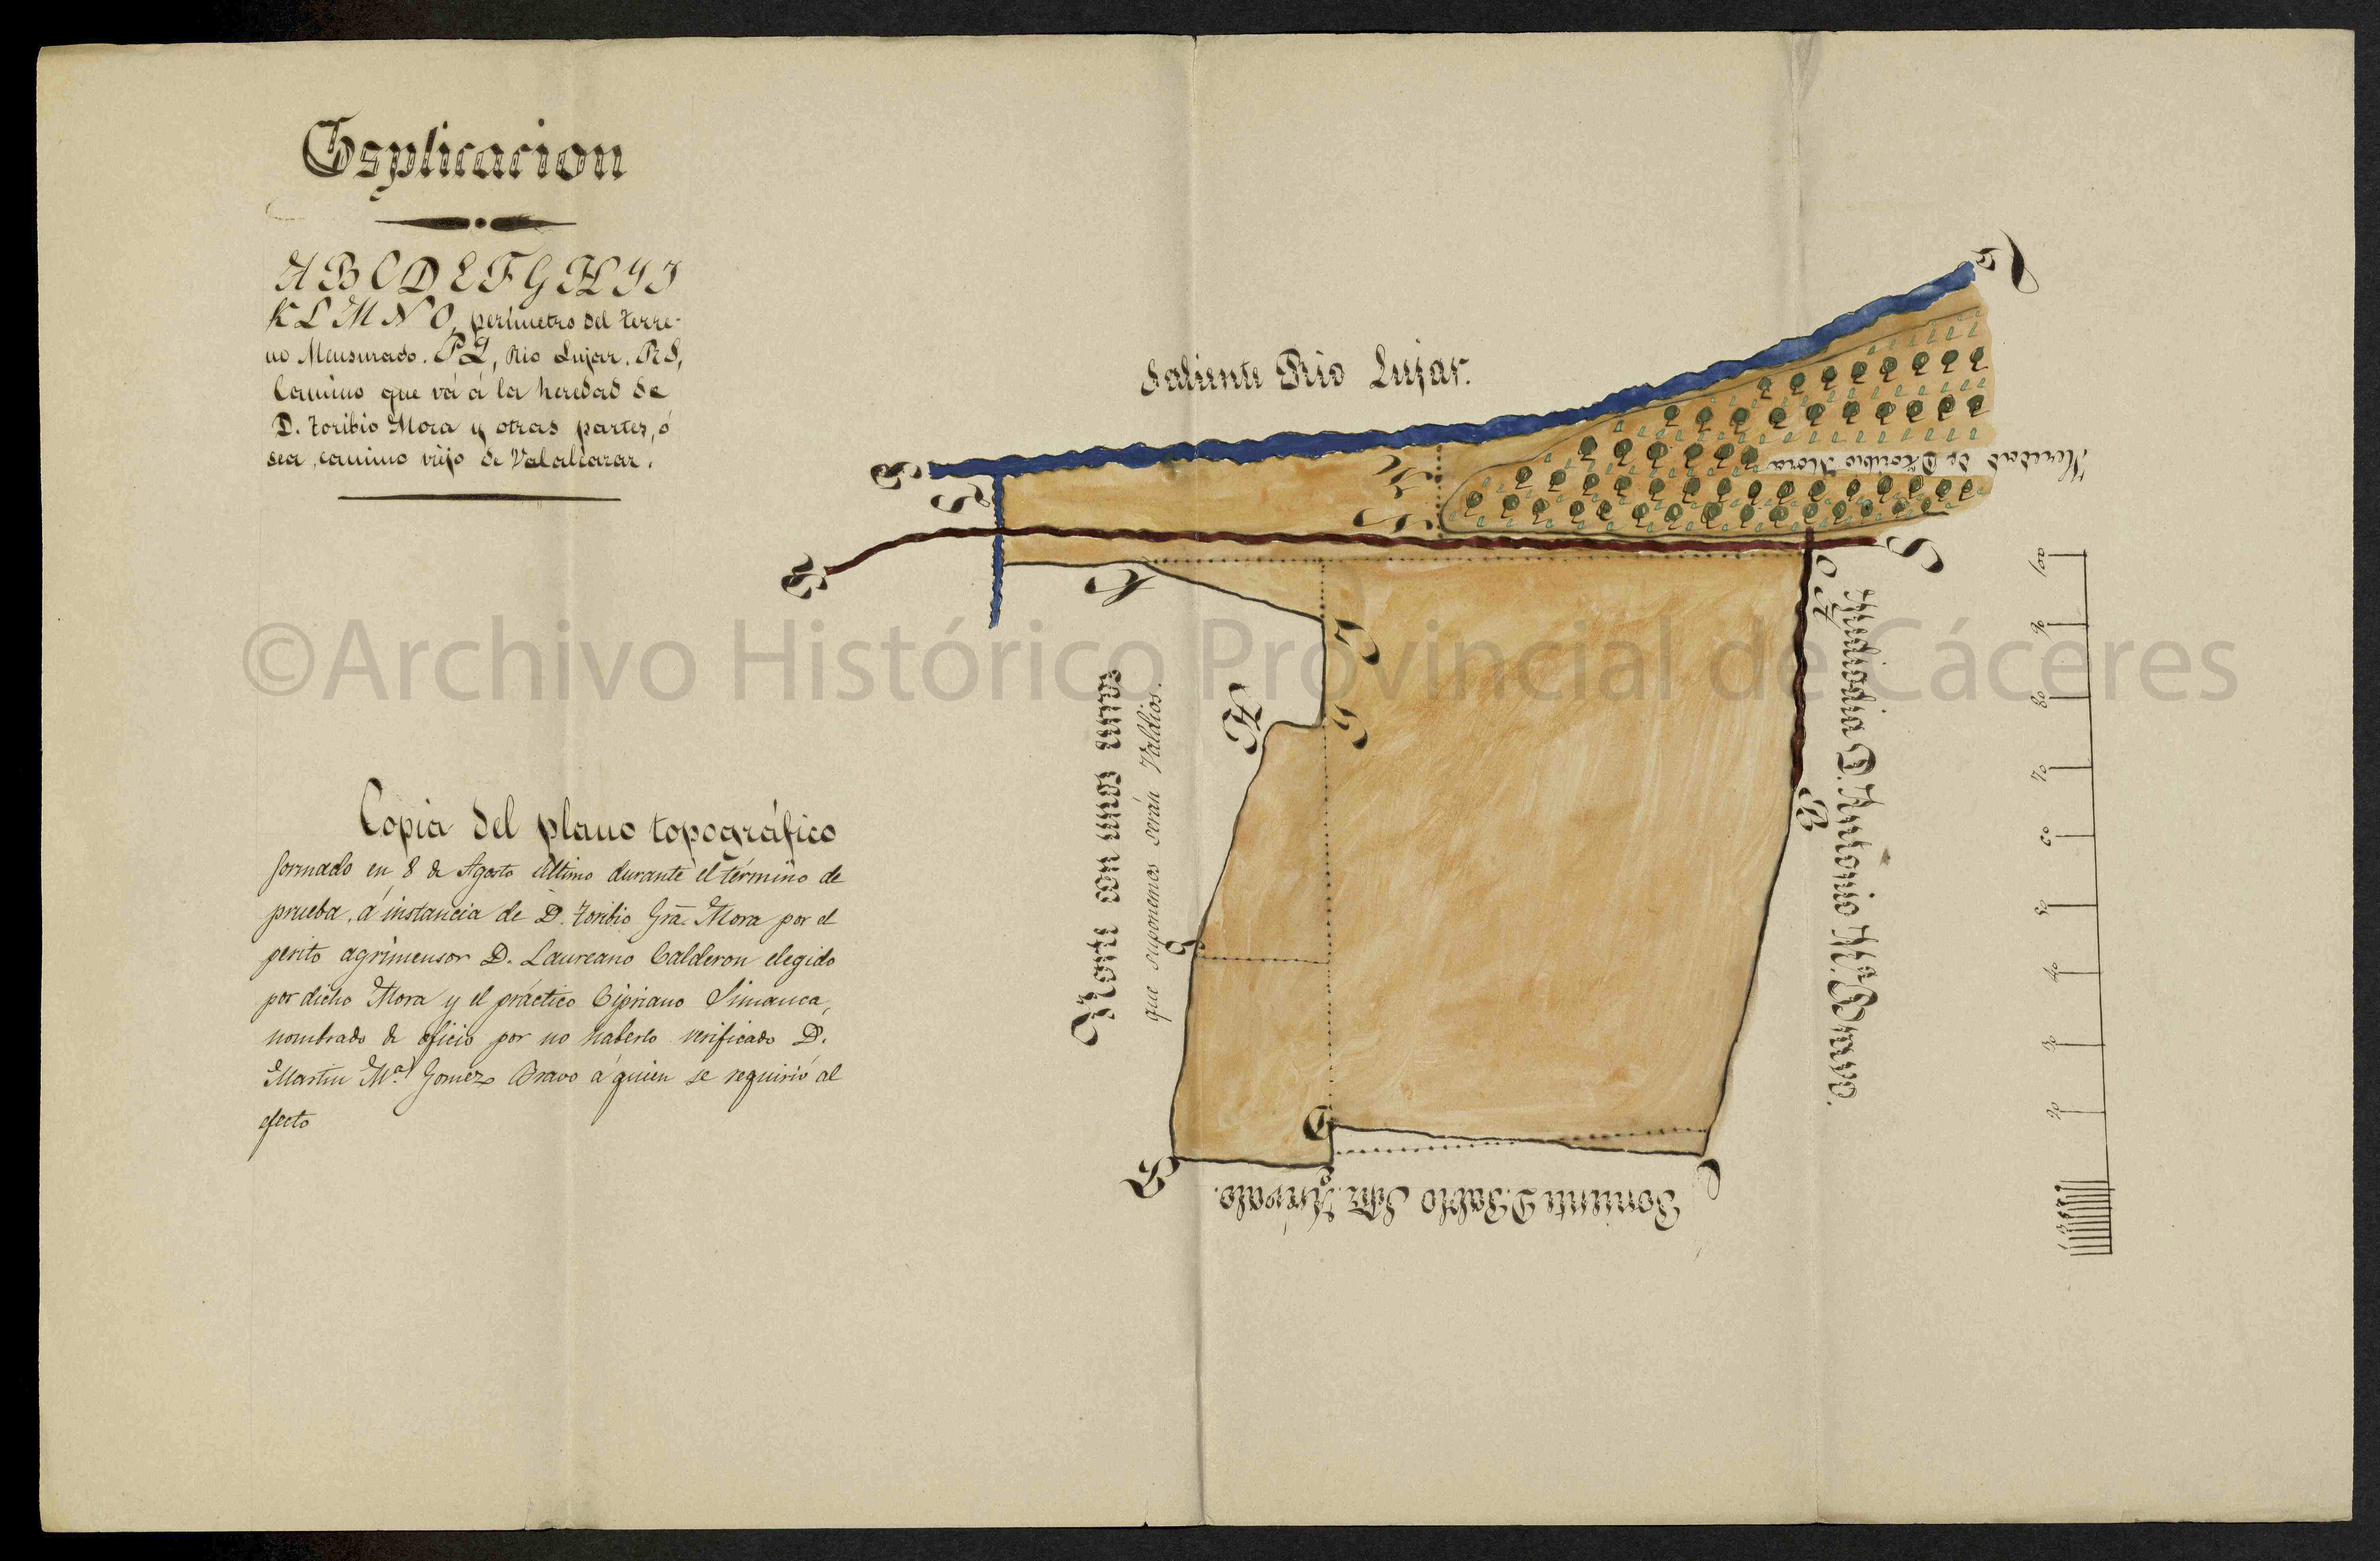 Esplicacion
A B C D E F G H I J
K L M N O, perímetro del terre-
no Mensurado. P Q, Rio Lujar. R S,
Camino que vá á la heredad de
D. Toribio Mora y otras partes, ó
sea, camino viejo de Valalcazar.
Copia del plano topográfico
formado en 8 de Agosto último durante el término de
prueba, á instancia de D. Toribio Gra. Mora por el
perito agrimensor D. Laureano Calderon elegido
por dicho Mora y el práctico Cipriano Simanca,
nombrado de oficio por no haberlo verificado D.
Martin Ma. Gomez Bravo á quien se requirió al
efecto
Saliente Rio Lujar.
Heredad de D. Toribio Mora
Norte con unos unos
que suponemos serán Valdios.
Mediodia D. Antonio M. Bravo.
Poniente D. Pablo Arévalo.
P
Q
R
S
L
M
N
K
J
I
H
G
F
E
D
C
B
A
O
100
90
80
70
60
50
40
30
20
©Archivo Histórico Provincial de Cáceres